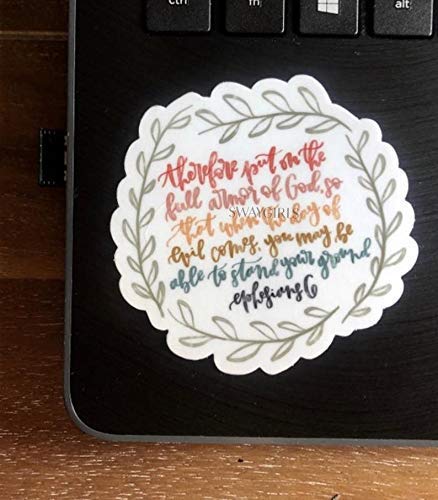 Ctrl
fn
alt
therefore put on the
full armor of God, so
SWAYGIRLS
that when the day of
evil comes, you may be
able to stand your ground
ephesians 6